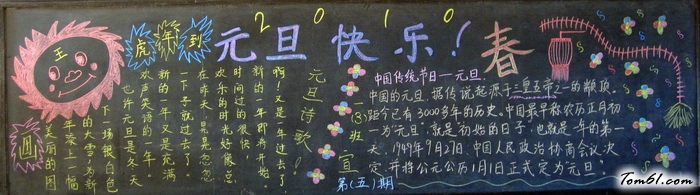 虎年到
2010
元旦快乐!
春
王
圆
元旦诗歌
啊!又是一年过去了,
新的一年即将开始
时间过的很快,
快乐的时光好像总
在昨天,晃晃忽忽
一下子就过去了。
新的一年又是充满
欢声笑语的一年。
也许元旦是冬天
下一场银白色
的大雪,为新
年添上一幅
美丽的图
中国传统节日——元旦.
中国的元旦,据传说起源于三皇五帝之一的颛顼,
距今已有3000多年的历史。中国最早称农历正月初
一为“元旦”就是初始的日子,也就是一年的第一
天,1949年9月27日,中国人民政治协商会议决
定,并将公元公历1月1日正式定为“元旦”。
一(3)班 宣
第(五)期
Tom61.com